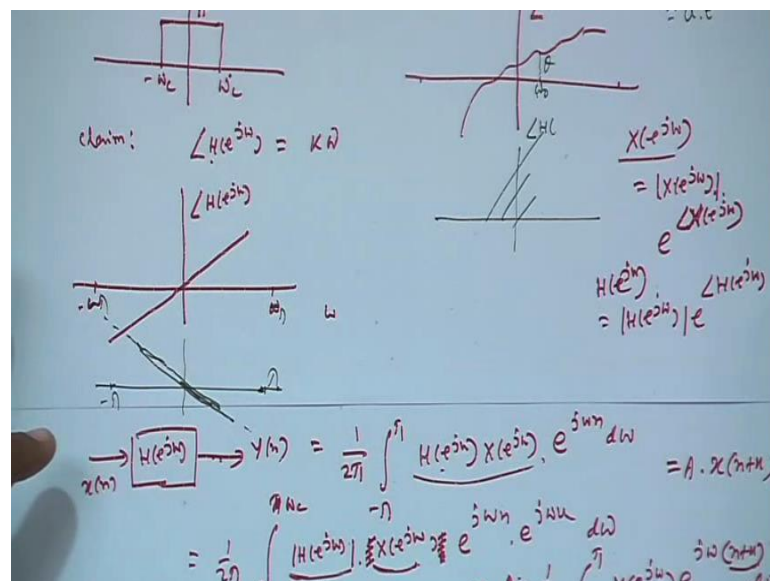 = a.t
-ωc ωc
θ
ω0
Claim: ∠H(e^jω) = Kω
∠H(
X(e^jω)
= |X(e^jω)|.
e^∠X(e^jω)
∠H(e^jω)
H(e^jω)
= |H(e^jω)| e^∠H(e^jω)
-π π
ω
-π π
x(n) H(e^jω) Y(n) = 1/2π ∫_-π^π H(e^jω) X(e^jω). e^jωn dω = A. x(n+K
= 1/2π ∫^ωc |H(e^jω)|. X(e^jω) e^jωn. e^jωK dω
π
X(e^jω) e^jω(n+K)